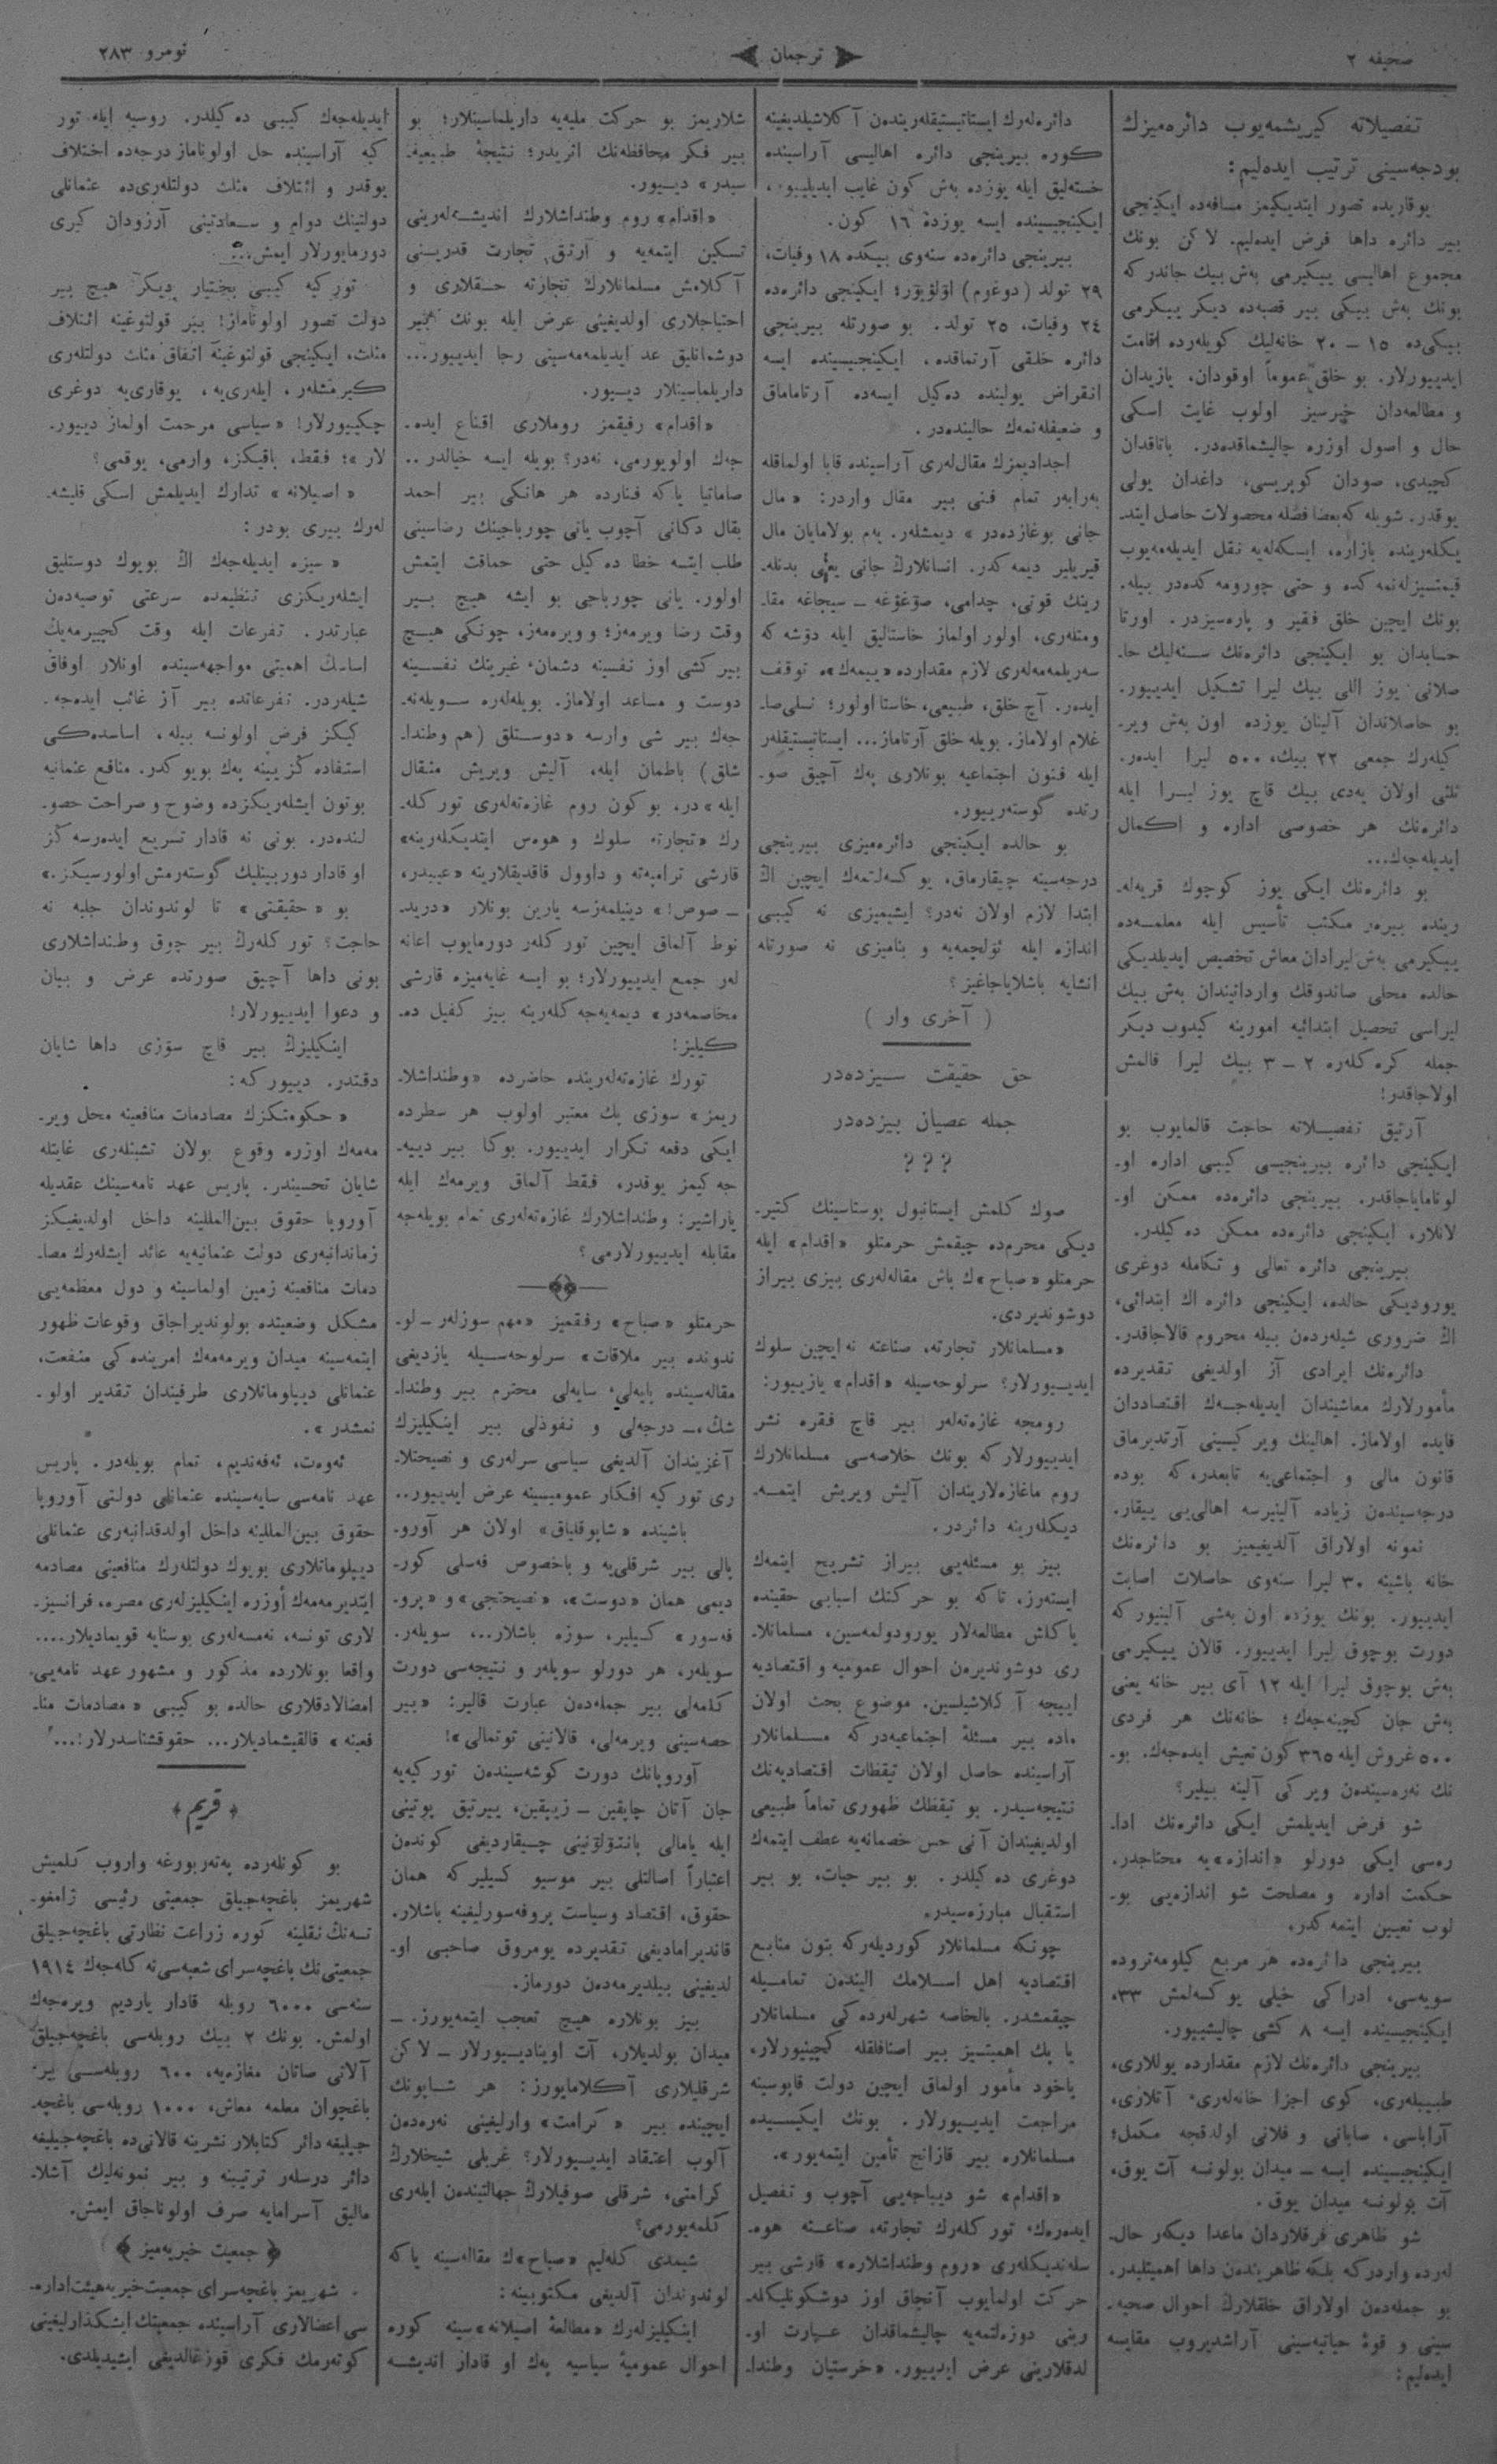 صحیفه ٢
ترجمان
نومرو ٢٨٣
تفصیلاته کیریشمه‌یوب دائره‌میزك
بودجه‌سینی ترتیب ایده‌لیم:
یوقاریده تصور ایتدیکیمز مسافه‌ده ایکینجی
بیر دائره داها فرض ایده‌لیم. لاکن بونك
مجموع اهالیسی ییکیرمی به‌ش بیك جاندر که
بونك به‌ش بیکی بیر قصبه‌ده دیکر ییکرمی
بیکی‌ده ١٥ ــ ٢٠ خانه‌لیك کویله‌رده اقامت
ایدییورلار. بو خلق عموماً اوقودان، یازیدان
و مطالعه‌دان خبرسیز اولوب غایت اسکی
حال و اصول اوزره چالیشماقده‌در. باتاقدان
کچیدی، صودان کوپریسی، داغدان یولی
یوقدر. شویله که بعضا فضله محصولات حاصل ایتد۔
یکله‌رینده بازاره، ایسکه‌له‌یه نقل ایدیله‌مه‌یوب
قیمتسیزله‌نمه کده و حتی چورومه کده‌در بیله.
بونك ایچین خلق فقیر و پاره‌سیزدر. اورتا
حسابدان بو ایکینجی دائره‌نك سنه‌لیك حا۔
صلاتی یوز اللی بیك لیرا تشکیل ایدییور.
بو حاصلاتدان آلینان یوزده اون به‌ش ویر۔
کیله‌رك جمعی ٢٢ بیك، ٥٠٠ لیرا ایده‌ر.
ثلثی اولان یه‌دی بیك قاچ یوز لیرا ایله
دائره‌نك هر خصوصی اداره و اکمال
ایدیله‌جه‌ك...
بو دائره‌نك ایکی یوز کوچوك قریه‌له۔
رینده بیره‌ر مکتب تأسیس ایله معلمه‌ده
ییکیرمی به‌ش لیرادان معاش تخصیص ایدیلدیکی
حالده محلی صاندوقك وارداتیندان به‌ش بیك
لیراسی تحصیل ابتدائیه امورینه کیدوب دیکر
جمله کره کله‌ره ٢ ــ ٣ بیك لیرا قالمش
اولاجاقدر!
آرتیق تفصیلاته حاجت قالمایوب بو
ایکینجی دائره بیرینجیسی کیبی اداره او۔
لونامایاجاقدر. بیرینجی دائره‌ده ممکن او۔
لانلار، ایکینجی دائره‌ده ممکن ده کیلدر.
بیرینجی دائره تعالی و تکامله دوغری
یورودیکی حالده، ایکینجی دائره اك ابتدائی،
اڭ ضروری شیله‌ردن بیله محروم قالاجاقدر.
دائره‌نك ایرادی آز اولدیغی تقدیرده
مأمورلارك معاشیندان ایدیله‌جه‌ك اقتصاددان
فایده اولاماز. اهالینك ویرکیسینی آرتدیرماق
قانون مالی و اجتماعی‌یه تابعدر، که بوده
درجه‌سیندن زیاده آلینیرسه اهالی‌یی ییقار.
نمونه اولاراق آلدیغیمیز بو دائره‌نك
خانه باشینه ٣٠ لیرا سنه‌وی حاصلات اصابت
ایدییور. بونك یوزده اون به‌شی آلینیور که
دورت بوچوق لیرا ایدییور. قالان ییکیرمی
به‌ش بوچوق لیرا ایله ١٢ آی بیر خانه یعنی
به‌ش جان کچینه‌جه‌ك؛ خانه‌نك هر فردی
٥٠٠ غروش ایله ٣٦٥ کون تعیش ایده‌جه‌ك. بو۔
نك نه‌ره‌سیندن ویرکی آلینه بیلیر؟
شو فرض ایدیلمش ایکی دائره‌نك ادا۔
ره‌سی ایکی دورلو «اندازه»یه محتاجدر.
حکمت اداره و مصلحت شو اندازه‌یی بو۔
لوب تعیین ایتمه کدر.
بیرینجی دائره‌ده هر مربع کیلومه‌تروده
سویه‌سی، ادراکی خیلی یوکسه‌لمش ٣٣،
ایکینجیسینده ایسه ٨ کشی چالیشییور.
بیرینجی دائره‌نك لازم مقدارده یوللاری،
طبیبله‌ری، کوی اجزا خانه‌له‌ری، آتلازی،
آراباسی، صابانی و فلانی اولدقجه مکمل؛
ایکینجیسینده ایسه ــ میدان بولونسه آت یوق،
آت بولونسه میدان یوق.
شو ظاهری فرقلاردان ماعدا دیکه‌ر حال۔
له‌رده واردر که بلکه ظاهریندن داها اهمیتلیدر.
بو جمله‌دن اولاراق خلقلارڭ احوال صحیه۔
سینی و قوهٔ حیاتیه‌سینی آراشدیروب مقایسه
ایده‌لیم:
دائره‌له‌رك ایستاتیستیقله‌ریندن آکلاشیلدیغینه
کوره بیرینجی دائره اهالیسی آراسینده
خسته‌لیق ایله یوزده به‌ش کون غایب ایدیلییور،
ایکینجیسینده ایسه یوزده ١٦ کون.
بیرینجی دائره‌ده سنه‌وی بیکده ١٨ وفیات،
٢٩ تولد (دوغوم) اولویور؛ ایکینجی دائره‌ده
٢٤ وفیات، ٢٥ تولد. بو صورتله بیرینجی
دائره خلقی آرتماقده، ایکینجیسینده ایسه
انقراض یولینده ده‌کیل ایسه‌ده آرتاماماق
و ضعیفله‌نمه‌ك حالینده‌در.
اجدادیمزك مقال‌له‌ری آراسینده قابا اولماقله
به‌رابه‌ر تمام فنی بیر مقال واردر: «مال
جانی بوغازده‌در» دیمشله‌ر. یه‌م بولامایان مال
قیریلیر دیمه کدر. انسانلارڭ جانی یعنی بدنله۔
رینك قوتی، چدامی، صوغوغه ــ سیجاغه مقا۔
ومتله‌ری، اولور اولماز خاستالیق ایله دوشه که
سه‌ریلمه‌مه‌له‌ری لازم مقدارده «ییمه‌ك»ه توقف
ایده‌ر. آچ خلق، طبیعی، خاستا اولور؛ نسلی صا۔
غلام اولاماز. بویله خلق آرتاماز... ایستاتیستیقله‌ر
ایله فنون اجتماعیه بونلاری په‌ك آچیق صو۔
رتده گوسته‌رییور.
بو حالده ایکینجی دائره‌میزی بیرینجی
درجه‌سینه چیقارماق، یوکسه‌لتمه‌ك ایچین اڭ
ابتدا لازم اولان نه‌در؟ ایشیمیزی نه کیبی
اندازه ایله ئولچمه‌یه و بنامیزی نه صورتله
انشایه باشلایاجاغیز؟
( آخری وار )
حق حقیقت سیزده‌در
جمله عصیان بیزده‌در
؟ ؟ ؟
صوك کلمش ایستانبول پوستاسینك کتیر۔
دیکی محرم‌ده چیقمش حرمتلو «اقدام» ایله
حرمتلو «صباح»ك باش مقاله‌له‌ری بیزی بیراز
دوشوندیردی.
«مسلمانلار تجارته، صناعته نه ایچین سلوك
ایدییورلار؟ سرلوحه‌سیله «اقدام» یازییور:
رومجه غازه‌ته‌له‌ر بیر قاچ فقره نشر
ایدییورلار که بونك خلاصه‌سی مسلمانلارك
روم ماغازه‌لاریندان آلیش ویریش ایتمه۔
دیکله‌رینه دائردر.
بیز بو مسئله‌یی بیراز تشریح ایتمه‌ك
ایسته‌رز، تاکه بو حرکتك اسبابی حقینده
یاکلش مطالعه‌لار یورودولمه‌سین، مسلمانلا۔
ری دوشوندیره‌ن احوال عمومیه و اقتصادیه
اییجه آکلاشیلسین. موضوع بحث اولان
ماده بیر مسئلهٔ اجتماعیه‌در که مسلمانلار
آراسینده حاصل اولان تیقظات اقتصادیه‌نك
نتیجه‌سیدر. بو تیقظك ظهوری تماماً طبیعی
اولدیغیندان آنی حس خصمانه‌یه عطف ایتمه‌ك
دوغری ده کیلدر. بو بیر حیات، بو بیر
استقبال مبارزه‌سیدر.
چونکه مسلمانلار کوردیله‌ر که بتون منابع
اقتصادیه اهل اسلامك الیندن تمامیله
چیقمشدر. بالخاصه شهرله‌رده‌کی مسلمانلار
یا پك اهمیتسیز بیر اصنافلقله کچینییورلار،
یاخود مأمور اولماق ایچین دولت قاپوسینه
مراجعت ایدییورلار. بونك ایکیسیده
مسلمانلاره بیر قازانج تأمین ایتمه‌یور».
«اقدام» شو دیباجه‌یی آچوب و تفصیل
ایده‌ره‌ك، تورکله‌رك تجارته، صناعته هوه۔
سله‌ندیکله‌ری «روم وطنداشلاره» قارشی بیر
حرکت اولمایوب آنجاق اوز دوشکونلیکله۔
رینی دوزه‌لتمه‌یه چالیشماقدان عبارت او۔
لدقلارینی عرض ایدییور. «خرستیان وطندا۔
شلاریمز بو حرکت ملیه‌یه داریلماسینلار؛ بو
بیر فکر محافظه‌نك اثریدر؛ نتیجهٔ طبیعیه۔
سیدر» دییور.
«اقدام» روم وطنداشلارك اندیشه‌له‌رینی
تسکین ایتمه‌یه و آرتق تجارت قدرینی
آکلامش مسلمانلارك تجارته حقلاری و
احتیاجلاری اولدیغینی عرض ایله بونك بیر
دوشمانلیق عد ایدیلمه‌مه‌سینی رجا ایدییور...
داریلماسینلار دییور.
«اقدام» رفیقمز روملاری اقناع ایده۔
جه‌ك اولویورمی، نه‌در؟ بویله ایسه خیالدر..
صاماتیا یاکه فنارده هر هانکی بیر احمد
بقال دکانی آچوب یانی چورباجینك رضاسینی
طلب ایتسه خطا ده کیل حتی حماقت ایتمش
اولور. یانی چورباجی بو ایشه هیچ بیر
وقت رضا ویرمه‌ز؛ و ویره‌مه‌ز، چونکی هیچ
بیر کشی اوز نفسینه دشمان، غیرینك نفسینه
دوست و مساعد اولاماز. بویله‌له‌ره سویله‌نه۔
جه‌ك بیر شی وارسه «دوستلق (هم وطندا۔
شلق) باطمان ایله، آلیش ویریش مثقال
ایله» در. بو کون روم غازه‌ته‌له‌ری تورکله۔
رك «تجارته سلوك و هوه‌س ایتدیکله‌رینه»
قارشی ترامپه‌ته و داوول قاقدیقلارینه «عییدر،
ــ صوص!» دینیلمه‌زسه یارین بونلار «درید۔
نوط آلماق ایچین تورکله‌ر دورمایوب اعانه
له‌ر جمع ایدییورلار؛ بو ایسه غایه‌میزه قارشی
مخاصمه‌در» دیمه‌یه‌جه کله‌رینه بیز کفیل ده۔
کیلیز!
تورك غازه‌ته‌له‌رینده حاضرده «وطنداشلا۔
ریمز» سوزی پك معتبر اولوب هر سطرده
ایکی دفعه تکرار ایدییور. بوکا بیر دییه۔
جه کیمز یوقدر، فقط آلماق ویرمه‌ك ایله
یاراشیر: وطنداشلارك غازه‌ته‌له‌ری تمام بویله‌جه
مقابله ایدییورلارمی؟
حرمتلو «صباح» رفقمیز «مهم سوزله‌ر ــ لو۔
ندونده بیر ملاقات» سرلوحه‌سیله یازدیغی
مقاله‌سینده پایه‌لی، سایه‌لی محترم بیر وطندا۔
شك، ــ درجه‌لی و نفوذلی بیر اینکیلیزك
آغزیندان آلدیغی سیاسی سرله‌ری و نصیحتلا۔
ری تورکیه افکار عمومیسینه عرض ایدییور..
باشینده «شاپوقلپاق» اولان هر آورو۔
پالی بیر شرقلی‌یه و باخصوص فه‌سلی کور۔
دیمی همان «دوست»، «نصیحتجی» و «پرو۔
فه‌سور» کسیلیر، سوزه باشلار... سویله‌ر.
سویله‌ر، هر دورلو سویله‌ر و نتیجه‌سی دورت
کلمه‌لی بیر جمله‌دن عبارت قالیر: «بیر
حصه‌سینی ویرمه‌لی، قالانینی توتمالی»!
آوروپانك دورت کوشه‌سیندن تورکیه‌یه
جان آتان چاپقین ــ زیپقین، ییرتیق پوتینی
ایله یامالی پانتولونینی چیقاردیغی کوندن
اعتباراً اصالتلی بیر موسیو کسیلیر که همان
حقوق، اقتصاد و سیاست پروفه‌سورلیغینه باشلار.
قاندیرامادیغی تقدیرده یومروق صاحبی او۔
لدیغینی بیلدیرمه‌دن دورماز.
بیز بونلاره هیچ تعجب ایتمه‌یورز. ــ
میدان بولدیلار، آت اوینادییورلار ــ لاکن
شرقلیلاری آکلامایورز: هر شاپونك
ایچینده بیر «کرامت» وارلیغینی نه‌ره‌دن
آلوب اعتقاد ایدییورلار؟ غربلی شیخلارڭ
کرامتی، شرقلی صوفیلارڭ جهالتیندن ایله‌ری
کلمه‌یورمی؟
شیمدی کله‌لیم «صباح»ك مقاله‌سینه یاکه
لوندوندان آلدیغی مکتوبینه:
اینکیلیزله‌رك «مطالعهٔ اصیلانه»سینه کوره
احوال عمومیهٔ سیاسیه په‌ك او قادار اندیشه
ایدیله‌جه‌ك کیبی ده کیلدر. روسیه ایله تور
کیه آراسینده حل اولوناماز درجه‌ده اختلاف
یوقدر و ائتلاف مثلث دولتله‌ری‌ده عثمانلی
دولتینك دوام و سعادتینی آرزودان کیری
دورمایورلار ایمش...
تورکیه کیبی بختیار دیکر هیچ بیر
دولت تصور اولوناماز! بیر قولتوغینه ائتلاف
مثلث، ایکینجی قولتوغینه اتفاق مثلث دولتله‌ری
کیرمشله‌ر، ایله‌ری‌یه، یوقاری‌یه دوغری
چکییورلار! «سیاسی مرحمت اولماز دییور۔
لار»؛ فقط، باقیکز، وارمی، یوقمی؟
«اصیلانه» تدارك ایدیلمش اسکی قلیشه۔
له‌رك بیری بودر:
«سیزه ایدیله‌جه‌ك اڭ بویوك دوستلیق
ایشله‌ریکزی تنظیمده سرعتی توصیه‌دن
عبارتدر. تفرعات ایله وقت کچیرمه‌یك
اساسك اهمیتی مواجهه‌سینده اونلار اوفاق
شیله‌ردر. تفرعاتده بیر آز غائب ایده‌جه۔
کیکز فرض اولونسه بیله، اساسده‌کی
استفاده کز یینه په‌ك بویوکدر. منافع عثمانیه
بوتون ایشله‌ریکزده وضوح و صراحت حصو۔
لنده‌در. بونی نه قادار تسریع ایده‌رسه کز
او قادار دوربینلیك گوسته‌رمش اولورسیکز.»
بو «حقیقتی» تا لوندوندان جلبه نه
حاجت؟ تورکله‌رڭ بیر چوق وطنداشلاری
بونی داها آچیق صورتده عرض و بیان
و دعوا ایدییورلار!
اینکیلیزك بیر قاچ سوزی داها شایان
دقتدر. دییور که:
«حکومتکزك مصادمات منافعینه محل ویر۔
مه‌مه‌ك اوزره وقوع بولان تشبثله‌ری غایتله
شایان تحسیندر. پاریس عهد نامه‌سینك عقدیله
آوروپا حقوق بین‌المللینه داخل اولدیغیکز
زماندانبه‌ری دولت عثمانیه‌یه عائد ایشله‌رك مصا۔
دمات منافعینه زمین اولماسینه و دول معظمه‌یی
مشکل وضعیتده بولوندیراجاق وقوعات ظهور
ایتمه‌سینه میدان ویرمه‌مه‌ك امرینده‌کی منفعت،
عثمانلی دیپلوماتلاری طرفیندان تقدیر اولو۔
نمشدر».
ئه‌وه‌ت، ئه‌فه‌ندیم، تمام بویله‌در. پاریس
عهد نامه‌سی سایه‌سینده عثمانلی دولتی آوروپا
حقوق بین‌المللینه داخل اولدقدانبه‌ری عثمانلی
دیپلوماتلاری بویوك دولتله‌رك منافعینی مصادمه
ایتدیرمه‌مه‌ك اوزره اینکیلیزله‌ری مصره، فرانسیز۔
لاری تونسه، نه‌مسه‌له‌ری بوسنایه قویمادیلار....
واقعا بونلارده مذکور و مشهور عهد نامه‌یی
امضالادقلاری حالده بو کیبی «مصادمات منا۔
فعینه» قالقیشمادیلار... حقوقشناسدرلار!...
﴿ قریم ﴾
بو کونله‌رده په‌ته‌ربورغه واروب کلمیش
شهریمز باغچه‌جیلق جمعیتی رئیسی
نقلینه کوره زراعت نظارتی باغچه‌جیلق
جمعیتی‌نك باغچه‌سرای شعبه‌سی‌نه کله‌جه‌ك ١٩١٤
سنه‌سی ٦٠٠٠ روبله قادار یاردیم ویره‌جه‌ك
اولمش. بونك ٢ بیك روبله‌سی باغچه‌جیلق
آلاتی صاتان مغازه‌یه، ٦٠٠ روبله‌سی بیر
باغچوان معلمه معاش، ١٠٠٠ روبله‌سی باغچه۔
جیلیغه دائر کتابلار نشرینه قالانی‌ده باغچه‌جیلیغه
دائر درسله‌ر ترتیبنه و بیر نمونه‌لیك آشلا۔
مالیق آسرامایه صرف اولوناجاق ایمش.
﴿ جمعیت خیریه‌میز ﴾
شهریمز باغچه‌سرای جمعیت خیریه هیئت اداره۔
سی اعضالاری آراسینده جمعیتك ایشکذارلیغینی
کوته‌رمك فکری قوزغالدیغی ایشیدیلدی.